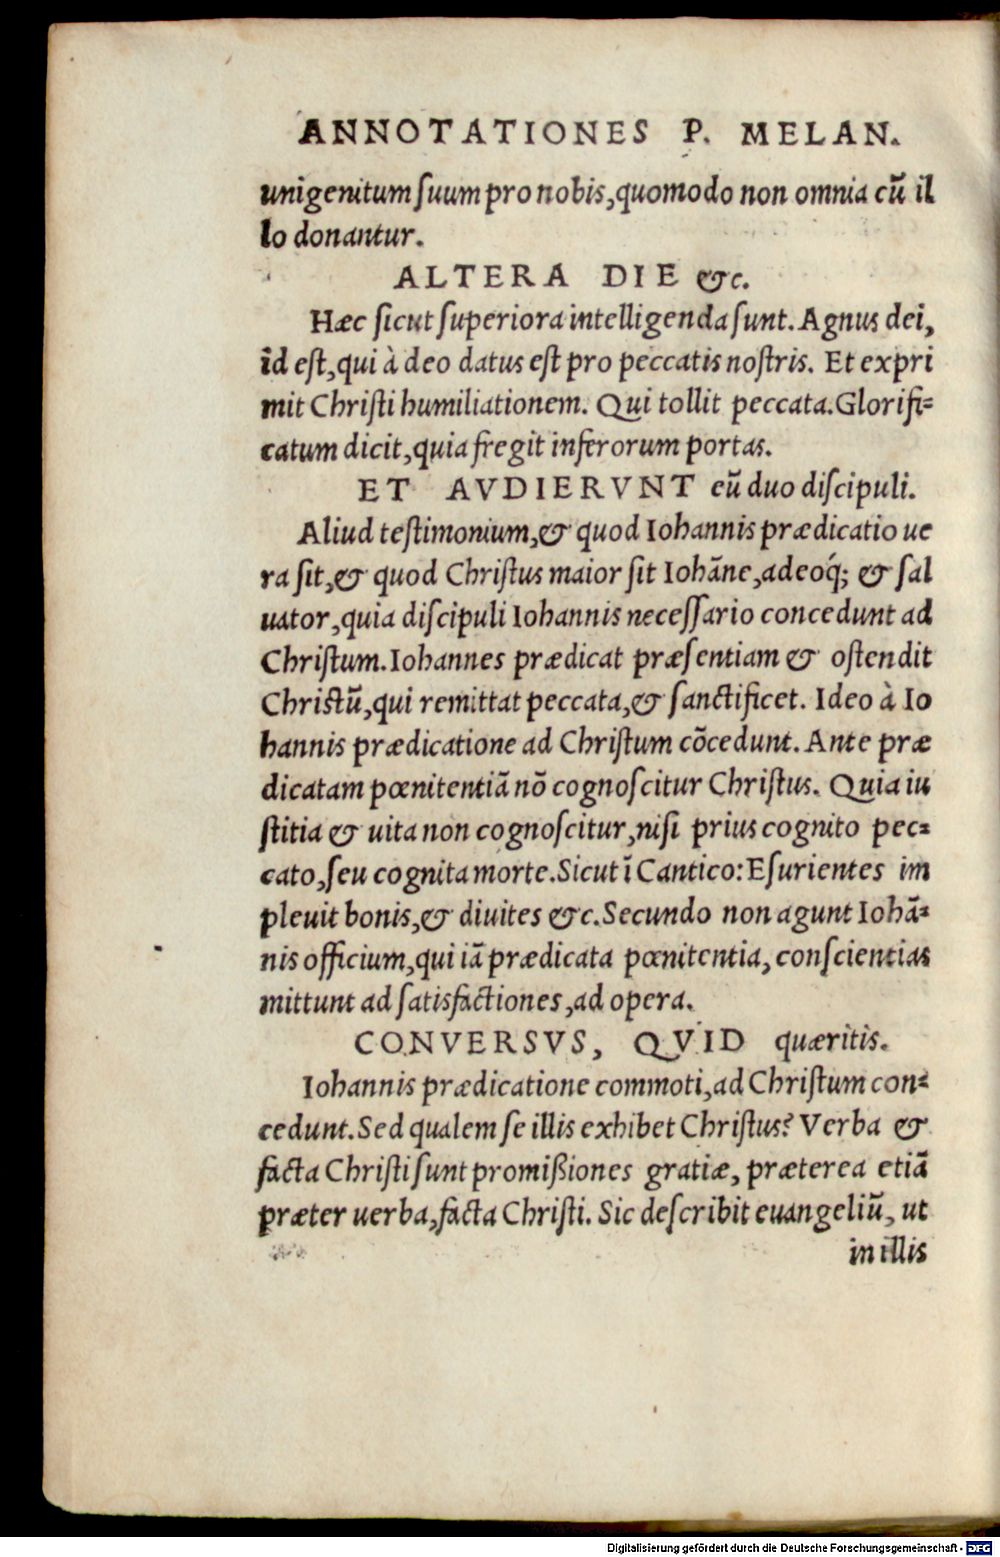 ANNOTATIONES P. MELAN.
unigenitum ſuum pro nobis, quomodo non omnia cũ il
lo donantur.
ALTERA DIE &c.
Hæc ſicut ſuperiora intelligenda ſunt. Agnus dei,
id eſt, qui à deo datus eſt pro peccatis noſtris. Et expri
mit Chriſti humiliationem. Qui tollit peccata. Glorifi⸗
catum dicit, quia fregit inferorum portas.
ET AVDIERVNT eũ duo diſcipuli.
Aliud teſtimonium, & quod Iohannis prædicatio ue
ra ſit, & quod Chriſtus maior ſit Iohãne, adeoq́; & ſal
uator, quia diſcipuli Iohannis neceſſario concedunt ad
Chriſtum. Iohannes prædicat præſentiam & oſtendit
Chriſtũ, qui remittat peccata, & ſanctificet. Ideo à Io
hannis prædicatione ad Chriſtum cõcedunt. Ante præ
dicatam pœnitentiã nõ cognoſcitur Chriſtus. Quia iu
ſtitia & uita non cognoſcitur, niſi prius cognito pec⸗
cato, ſeu cognita morte. Sicut ĩ Cantico: Eſurientes im
pleuit bonis, & diuites &c. Secundo non agunt Iohã⸗
nis officium, qui iã prædicata pœnitentia, conſcientias
mittunt ad ſatisfactiones, ad opera.
CONVERSVS, QVID quæritis.
Iohannis prædicatione commoti, ad Chriſtum con⸗
cedunt. Sed qualem ſe illis exhibet Chriſtus? Verba &
facta Chriſti ſunt promißiones gratiæ, præterea etiã
præter uerba, facta Chriſti. Sic deſcribit euangeliũ, ut
in illis
Digitalisierung gefördert durch die Deutsche Forschungsgemeinschaft - DFG